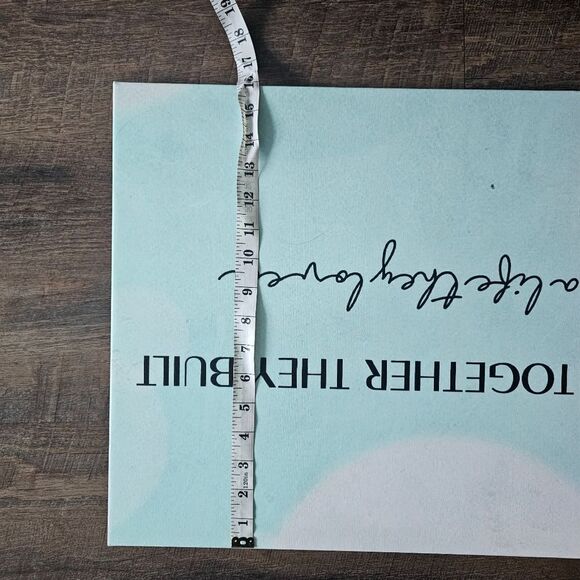 TOGETHER THEY BUILT
a life they loved
19
18
17
16
15
14
13
12
11
10
9
8
7
6
5
4
3
120in
2
1